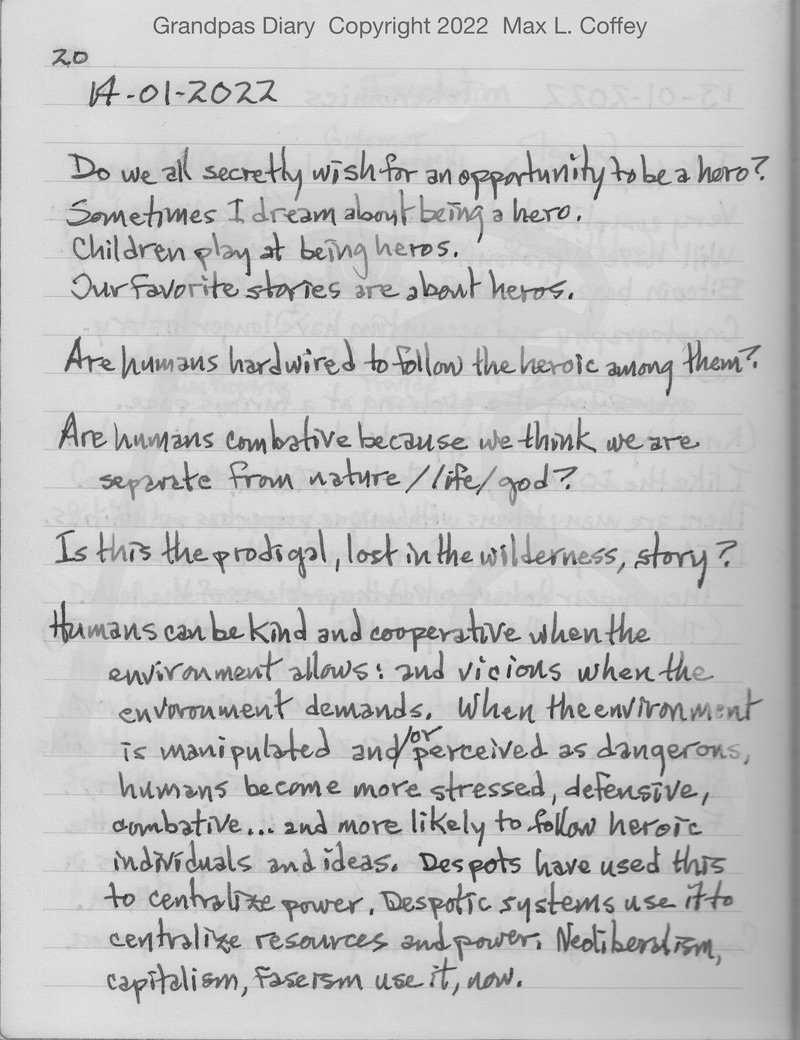 Grandpas Diary Copyright 2022 Max L. Coffey
20
14-01-2022
Do we all secretly wish for an opportunity to be a hero?
Sometimes I dream about being a hero.
Children play at being heros.
Our favorite stories are about heros.
Are humans hardwired to follow the heroic among them?
Are humans combative because we think we are
separate from nature//life/god?
Is this the prodigal, lost in the wilderness, story?
Humans can be kind and cooperative when the
environment allows: and vicious when the
envoronment demands. When the environment
is manipulated and/or perceived as dangerous,
humans become more stressed, defensive,
combative... and more likely to follow heroic
individuals and ideas. Despots have used this
to centralize power. Despotic systems use it to
centralize resources and power. Neoliberalism,
capitalism, fascism use it, now.